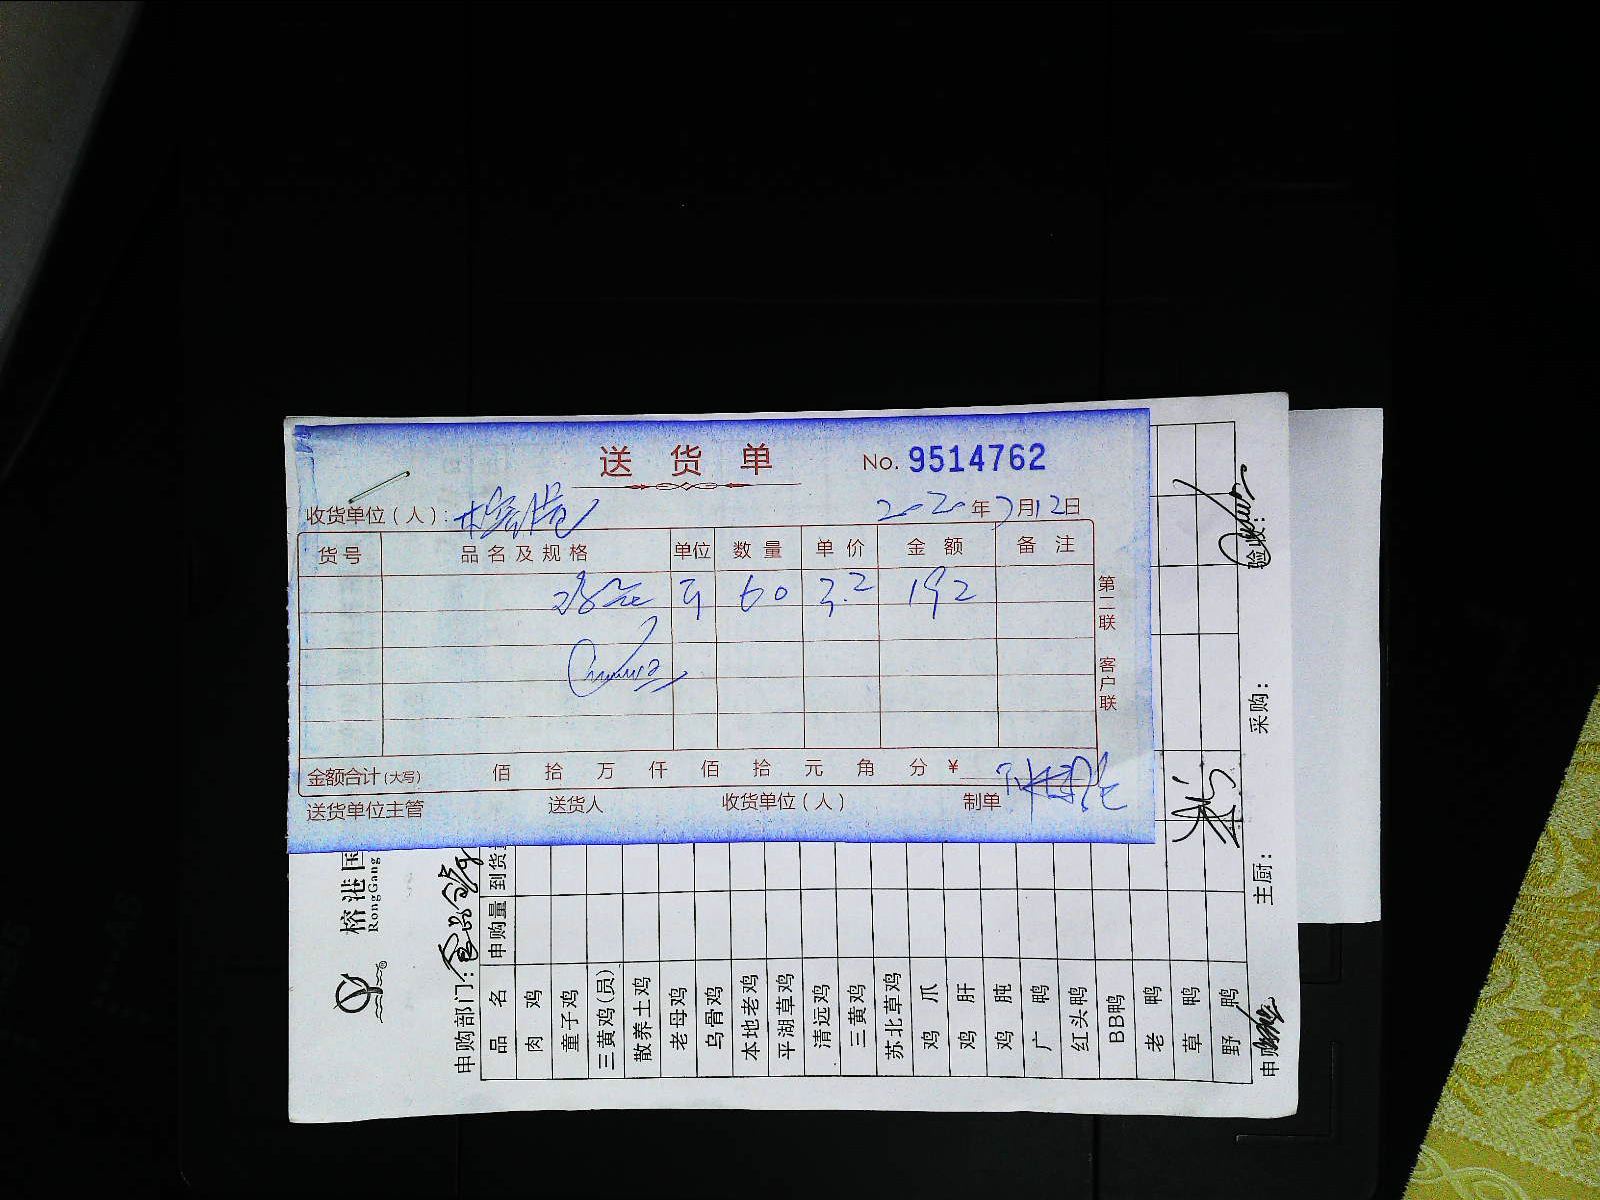 送货单 No. 9514762
收货单位（人）: 榕港 2020年7月12日
货号 品名及规格 单位 数量 单价 金额 备注
60 3.2 192
第二联 客户联
金额合计(大写) 佰 拾 万 仟 佰 拾 元 角 分 ¥
送货单位主管 送货人 收货单位（人） 制单
榕港国
RongGang
申购部门:
品名 申购量 到货
肉鸡
童子鸡
三黄鸡(员)
散养土鸡
老母鸡
乌骨鸡
本地老鸡
平湖草鸡
清远鸡
三黄鸡
苏北草鸡
鸡爪
鸡肝
鸡肫
广鸭
红头鸭
BB鸭
老鸭
草鸭
野鸭
主厨: 采购: 验收: